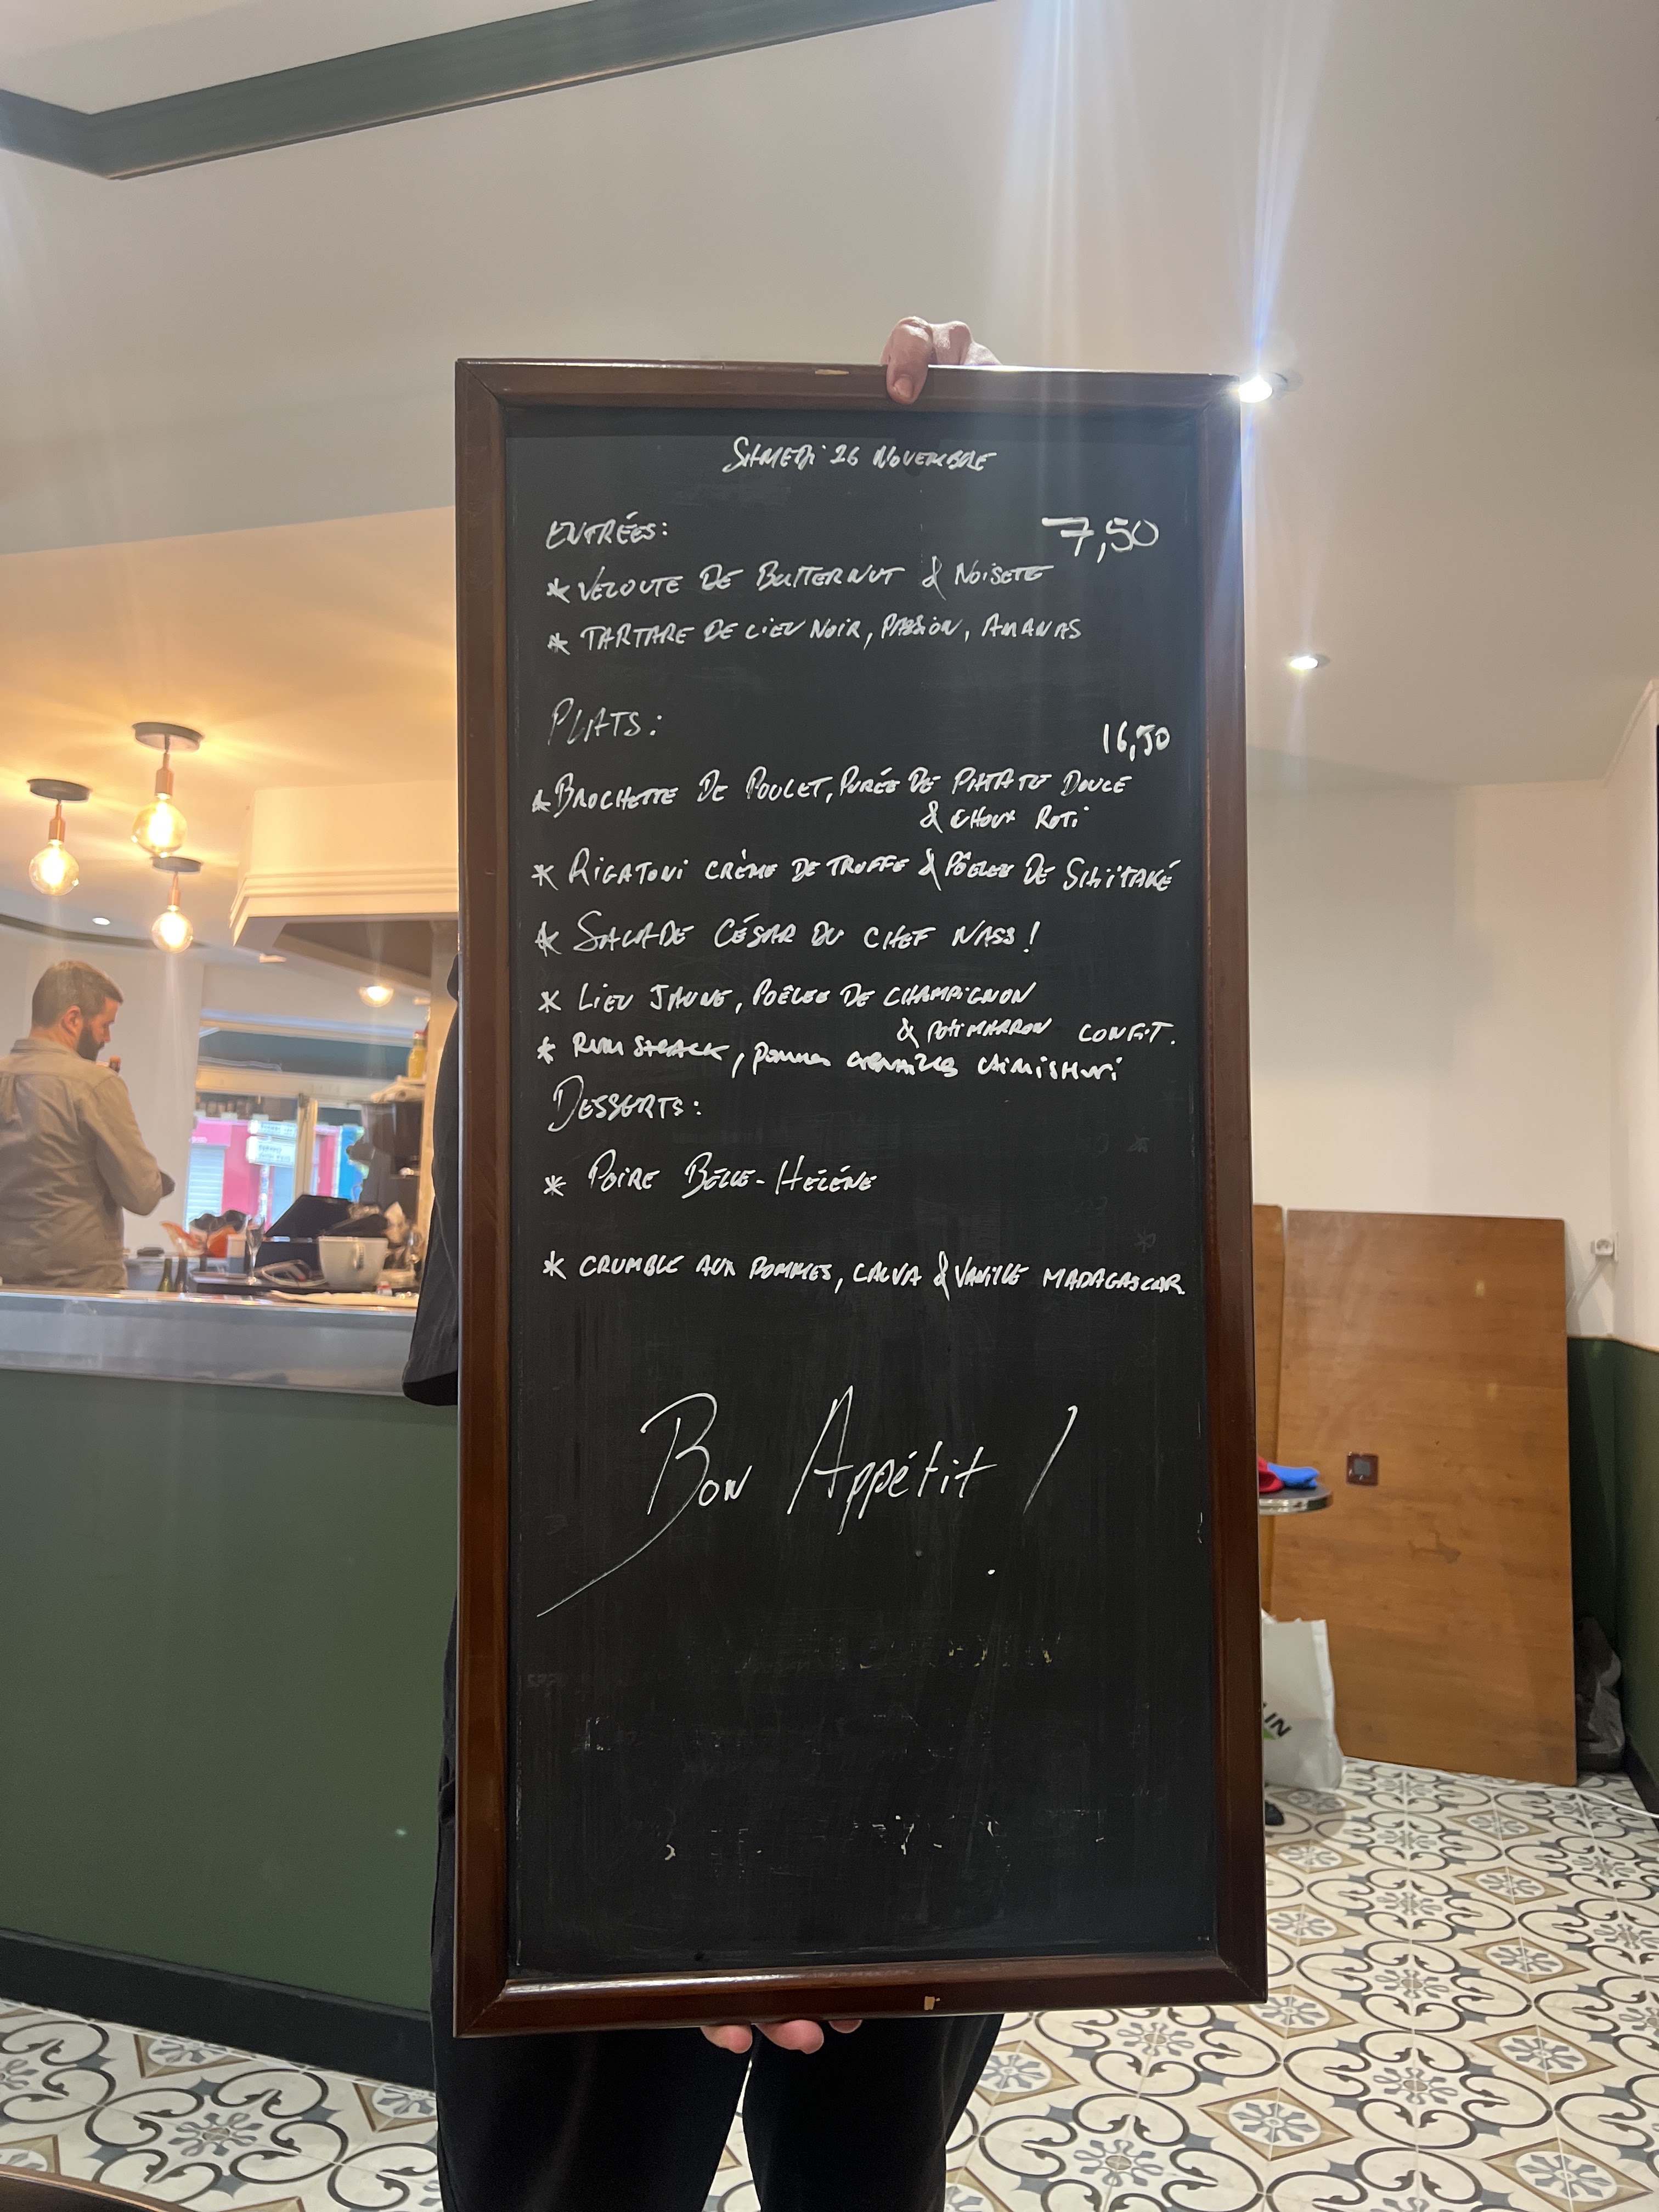 SAMEDI 26 NOVEMBRE
ENTRÉES: 7,50
* VELOUTE DE BUTTERNUT & NOISETE
* TARTARE DE LIEU NOIR, PASSION, ANANAS
PLATS: 16,50
* BROCHETTE DE POULET, PURÉE DE PATATE DOUCE
& CHOUX ROTI
* RIGATONI CRÈME DE TRUFFE & POÊLEE DE SHIITAKÉ
* SALADE CÉSAR DU CHEF NASS!
* LIEU JAUNE, POÊLEE DE CHAMPIGNON
& POTIMARRON CONFIT.
* RUMSTEACK, pommes grenailles
DESSERTS:
* POIRE BELLE-HÉLÉNE
* CRUMBLE AUX POMMES, CALVA & VANILLE MADAGASCAR
BON Appétit !
LIN